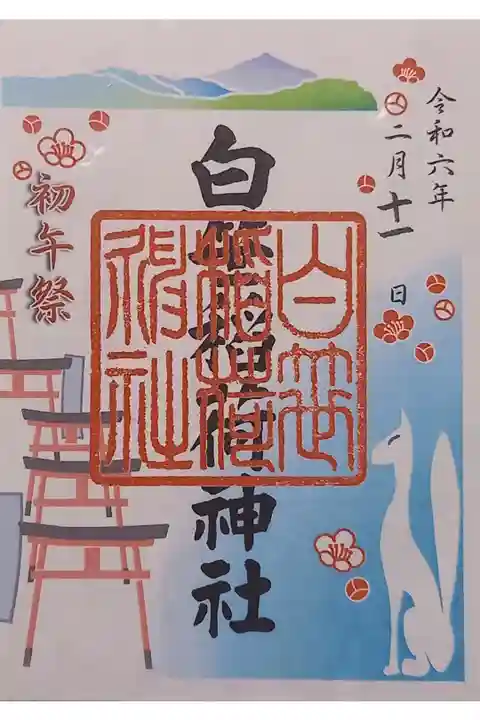 令和六年
二月十一日
白笹稲荷神社
白笹
稲荷
神社
初午祭